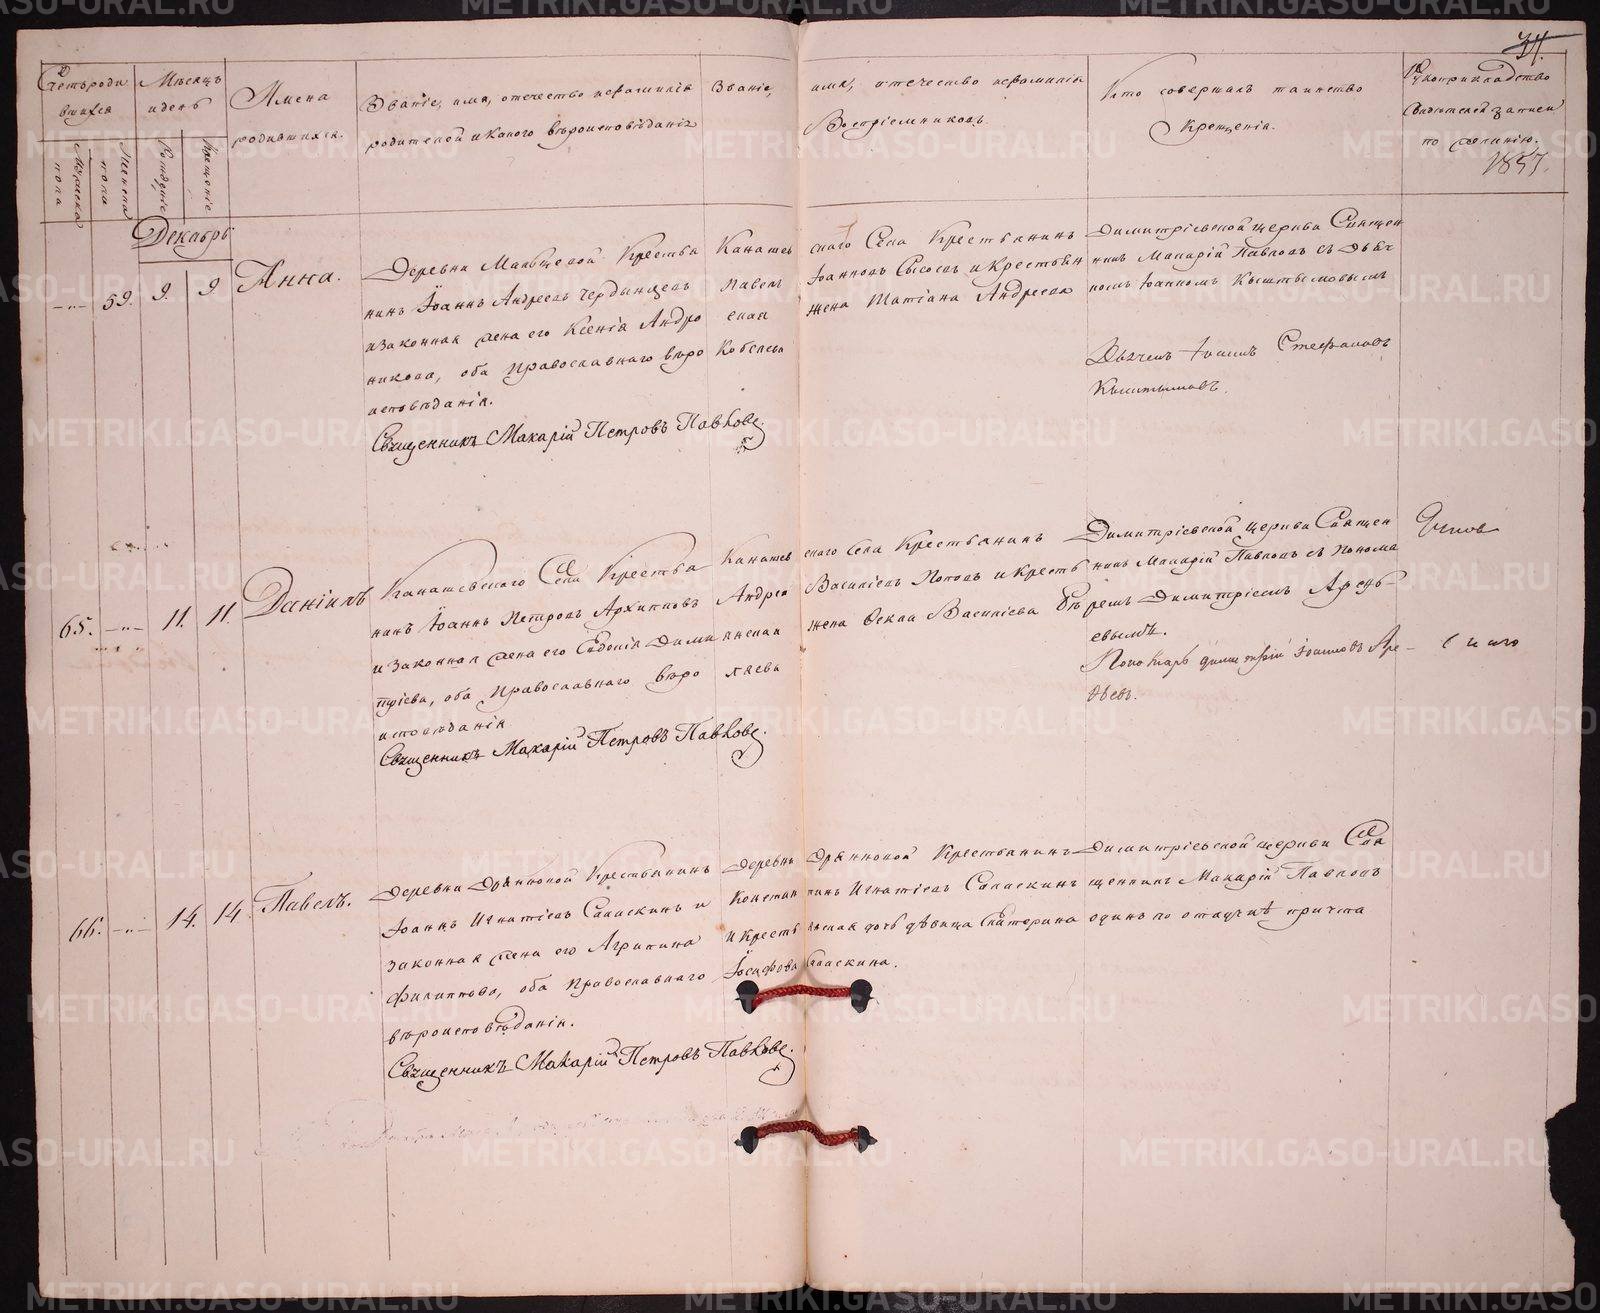 34.
Счетъ роди
вшихся
Мѣсяцъ
и день
Имена
родившихся.
Званіе, имя, отечество и фамилія
родителей и какого вѣроисповѣданія
Званіе, имя, отечество и фамилія
Воспріемниковъ.
Кто совершалъ таинство
Крещенія.
Рукоприкладство
свидѣтелей записи
по желанію.
1857.
Мужеска пола
Женска пола
Рожденіе
Крещеніе
Декабрь
59. 9. 9.
Анна.
Деревни Мальцевой Крестья
нинъ Іоаннъ Андреевъ Чердынцевъ
и законная жена его Ксенія Андро
никова, оба православнаго вѣро
исповѣданія.
Священникъ Макарій Петровъ Павловъ.
Канашевскаго Села Крестьянинъ
Павелъ Іоанновъ Сысоевъ и Крестьян
ская жена Татіана Андреева
Кобелева
Димитріевской церкви Священ
никъ Макарій Павловъ съ Дьяч
комъ Іоанномъ Кыштымовымъ
Дьячекъ Іоаннъ Стефановъ
Кыштымовъ.
65. 11. 11.
Даніилъ
Канашевскаго Села Крестья
нинъ Іоаннъ Петровъ Архиповъ
и законная жена его Евдокія Дими
тріева, оба православнаго вѣро
исповѣданія
Священникъ Макарій Петровъ Павловъ.
Канашевскаго Села Крестьянинъ
Андрей Васильевъ Поповъ и Кресть
янская жена Фекла Василіева
Димитріевской церкви Священ
никъ Макарій Павловъ съ Понома
ремъ Димитріемъ Арефь-
евымъ.
Пономарь Димитрій Іоанновъ Аре-
фьевъ.
66. 14. 14.
Павелъ.
Деревни Дрянновой Крестьянинъ
Іоаннъ Игнатіевъ Саласкинъ и
законная жена его Агрипина
Филиппова, оба православнаго
вѣроисповѣданія.
Священникъ Макарій Петровъ Павловъ.
Деревни Дрянновой Крестьянинъ
Констан тинъ Игнатіевъ Саласкинъ
и Кресть янская дочь дѣвица Екатерина
Іосифова Саласкина.
Димитріевской церкви Свя
щенникъ Макарій Павловъ
одинъ по отлучкѣ причта
METRIKI.GASO-URAL.RU